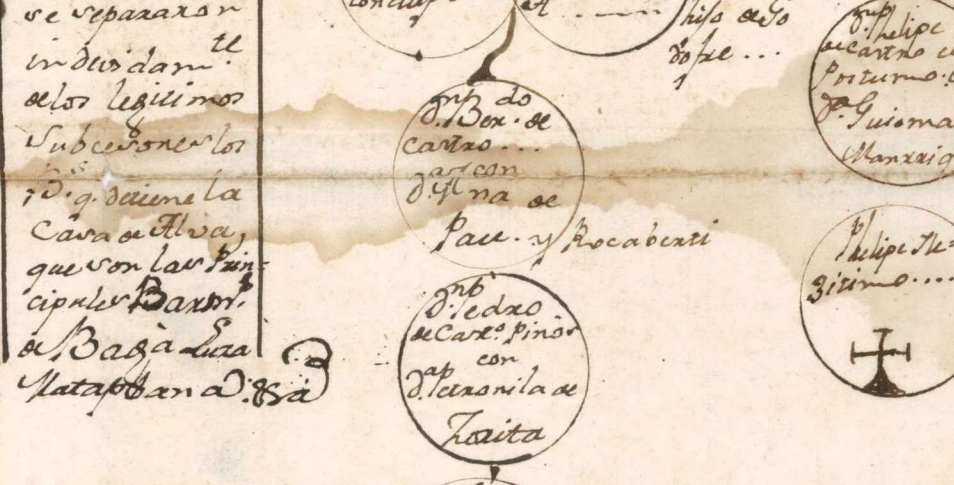 se separaron
indevidam.te
de los legitimos
subcesores los
B.s q. detiene la
Cása de Alva,
que son las Prin=
cipales Baron.s
de Bagà Luza
Matapbana D. &ra
hijo de Jo
dofre...
D. Ber.do de
Castro...
con
D.a Ana de
Pau. y Rocaberti
D. Pedro
de Cast.o Pinós
con
D.a Petronila de
Zorita
Phelipe
de Castro
Postumo.
D.a Guioma
Manrriq
Phelipe Ile=
gitimo....